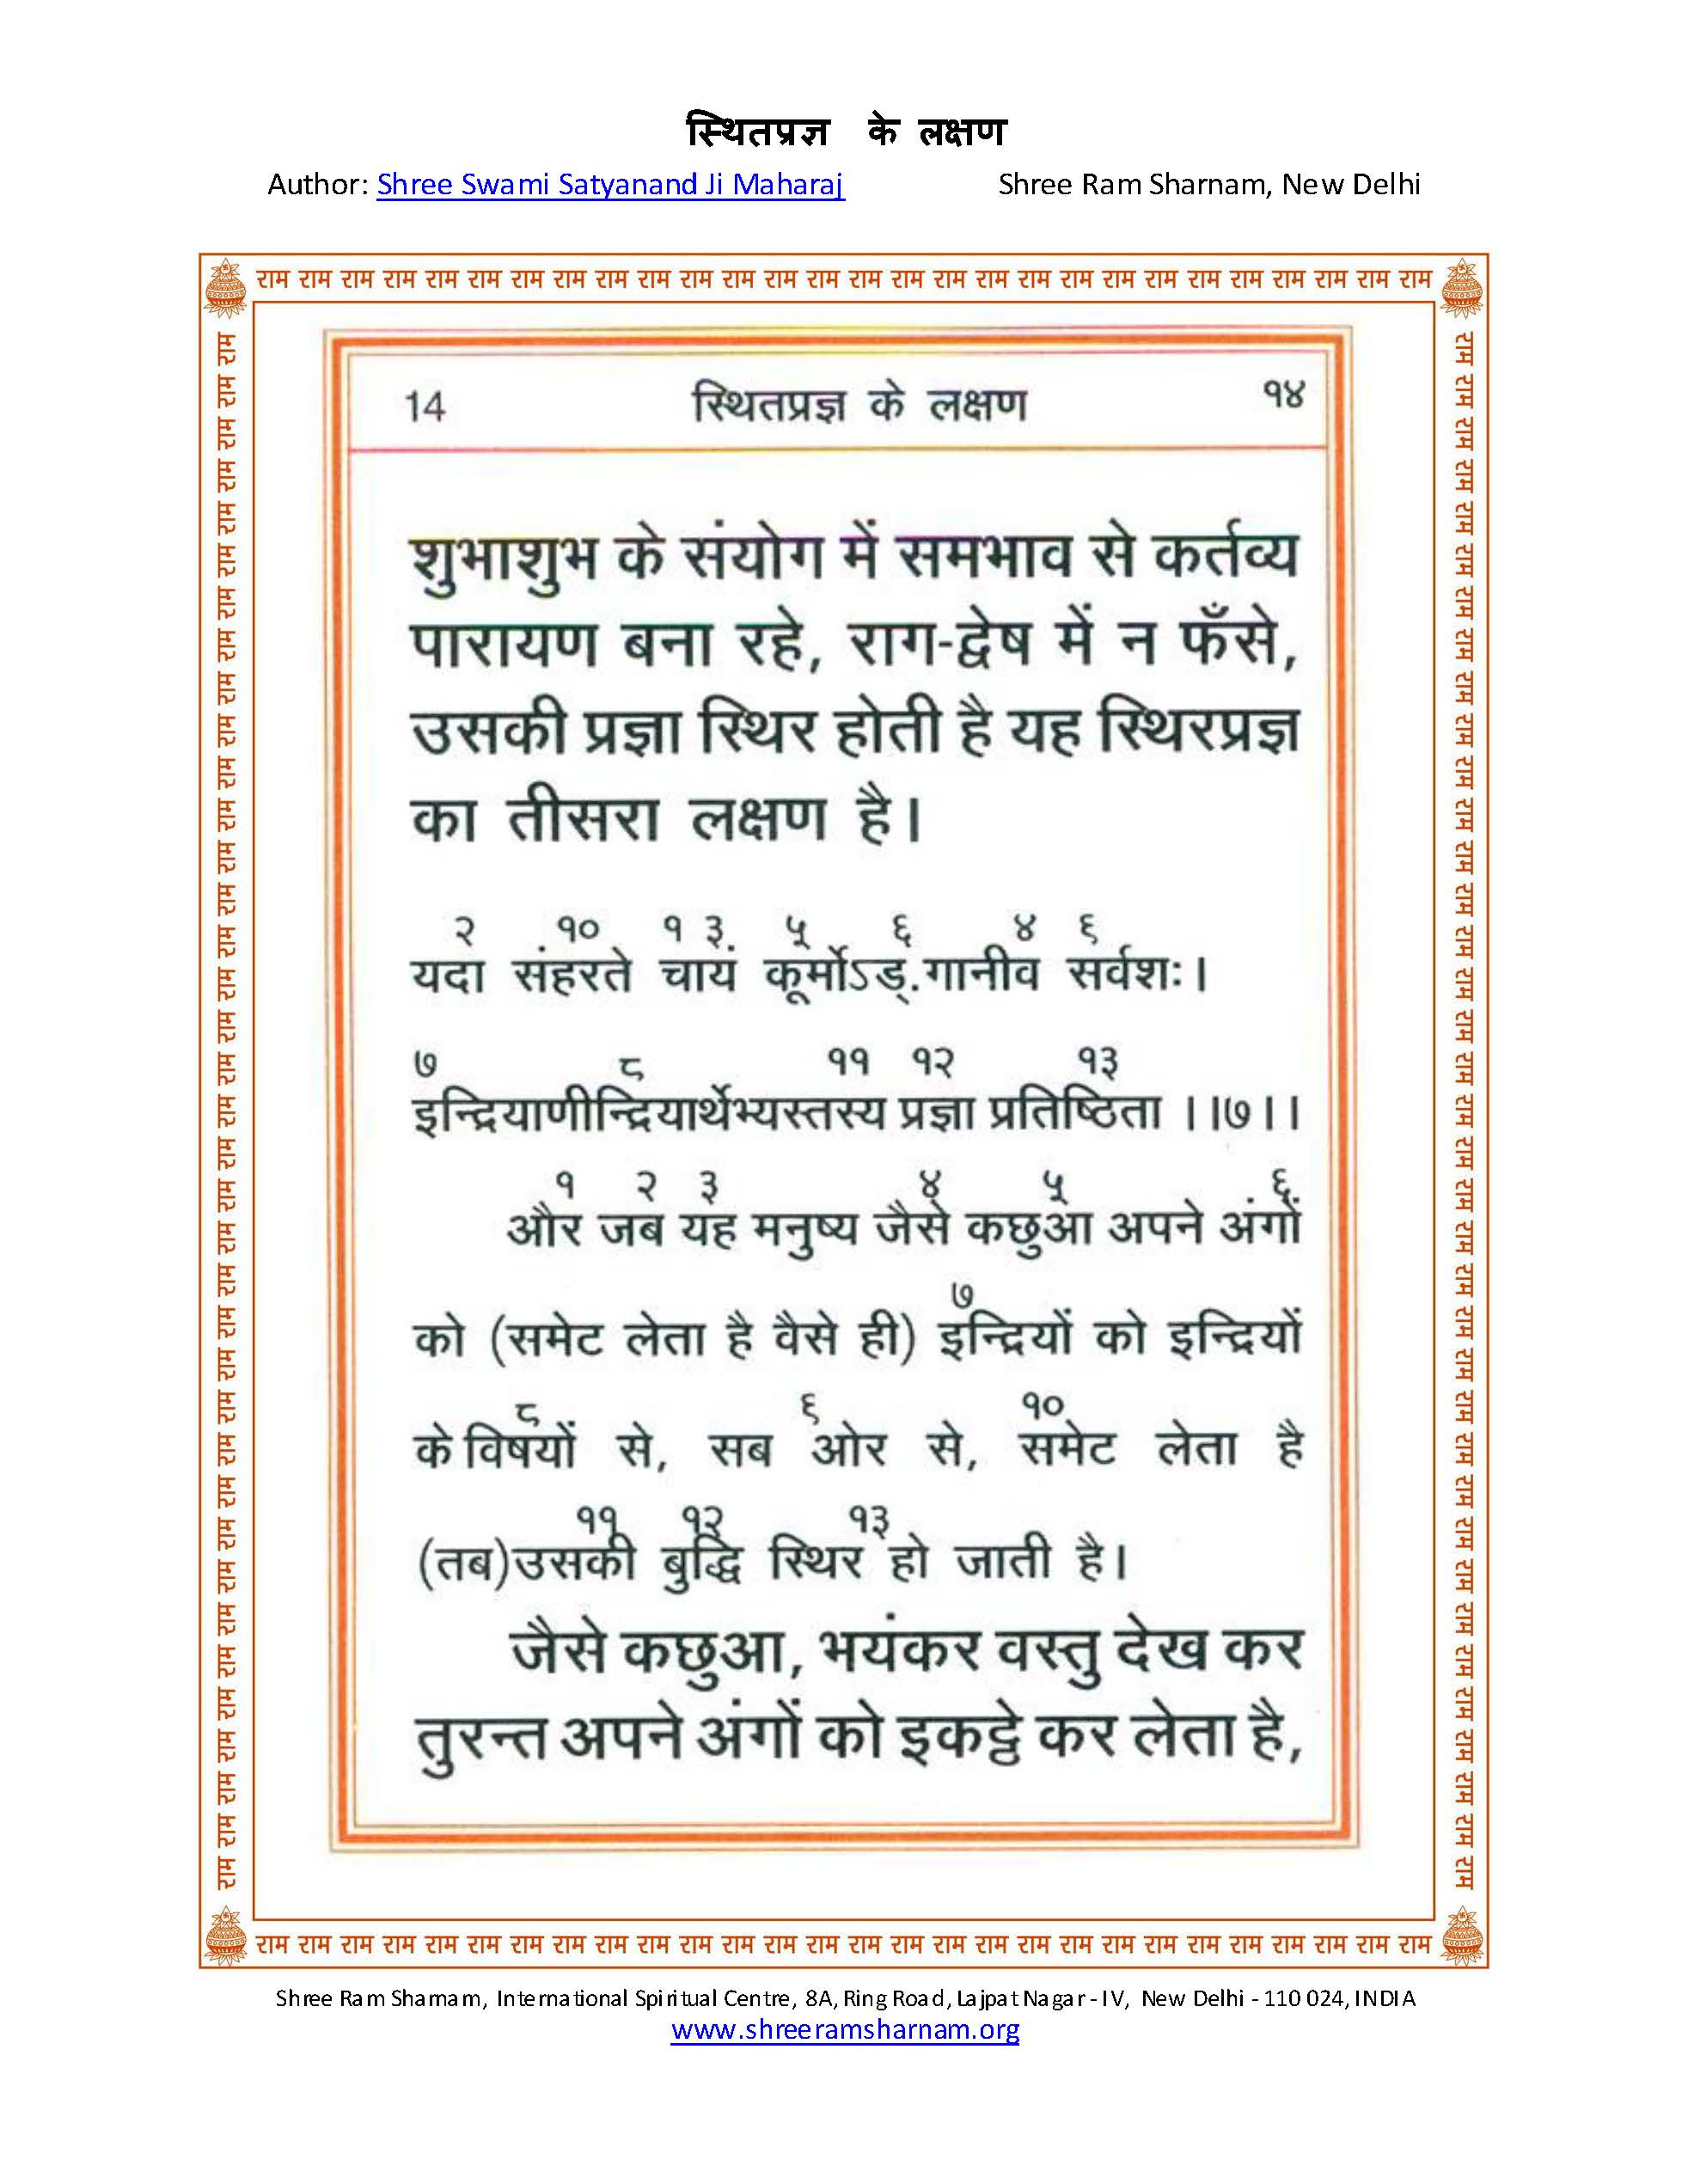 स्थितप्रज्ञ के लक्षण
Author: Shree Swami Satyanand Ji Maharaj Shree Ram Sharnam, New Delhi
राम राम राम राम राम राम राम राम राम राम राम राम राम राम राम राम राम राम राम राम राम राम राम राम राम राम राम राम
14 स्थितप्रज्ञ के लक्षण १४
शुभाशुभ के संयोग में समभाव से कर्तव्य
पारायण बना रहे, राग-द्वेष में न फँसे,
उसकी प्रज्ञा स्थिर होती है यह स्थिरप्रज्ञ
का तीसरा लक्षण है।
२ १० १ ३ ५ ६ ४ ९
यदा संहरते चायं कूर्मोऽड्.गानीव सर्वशः।
७ ८ ११ १२ १३
इन्द्रियाणीन्द्रियार्थेभ्यस्तस्य प्रज्ञा प्रतिष्ठिता ।।७।।
१ २ ३ ४ ५ ६
और जब यह मनुष्य जैसे कछुआ अपने अंगों
७
को (समेट लेता है वैसे ही) इन्द्रियों को इन्द्रियों
८ ९ १०
के विषयों से, सब ओर से, समेट लेता है
११ १२ १३
(तब)उसकी बुद्धि स्थिर हो जाती है।
जैसे कछुआ, भयंकर वस्तु देख कर
तुरन्त अपने अंगों को इकट्ठे कर लेता है,
राम राम राम राम राम राम राम राम राम राम राम राम राम राम राम राम राम राम राम राम राम राम राम राम राम राम राम राम
Shree Ram Sharnam, International Spiritual Centre, 8A, Ring Road, Lajpat Nagar - IV, New Delhi - 110 024, INDIA
www.shreeramsharnam.org
राम राम राम राम राम राम राम राम राम राम राम राम राम राम राम राम राम राम राम राम राम राम राम राम राम राम राम राम राम राम राम राम राम राम राम राम राम
राम राम राम राम राम राम राम राम राम राम राम राम राम राम राम राम राम राम राम राम राम राम राम राम राम राम राम राम राम राम राम राम राम राम राम राम राम